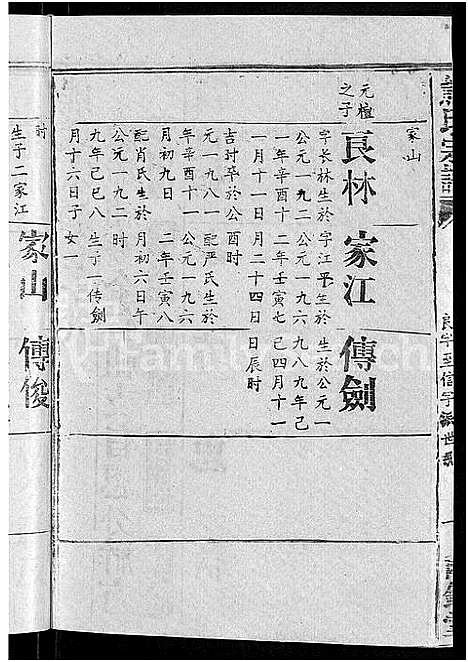 元檀
之子
良林
字长林生於
公元一九二
一年辛酉十
一月十一日
吉时卒於公
元一九八
年辛酉十一
月初九日
配肖氏生於
公元一九二
九年己巳八
月十六日子
时
生子二家江
家山
家江
字江平生於
公元一九六
二年壬寅七
月二十四日
酉时
配严氏生於
公元一九六
二年壬寅八
月初六日午
时
生子一传劍
女一
傳劍
生於公元一
九八九年己
巳四月十一
日辰时
家山
傳俊
良字至信字派世系